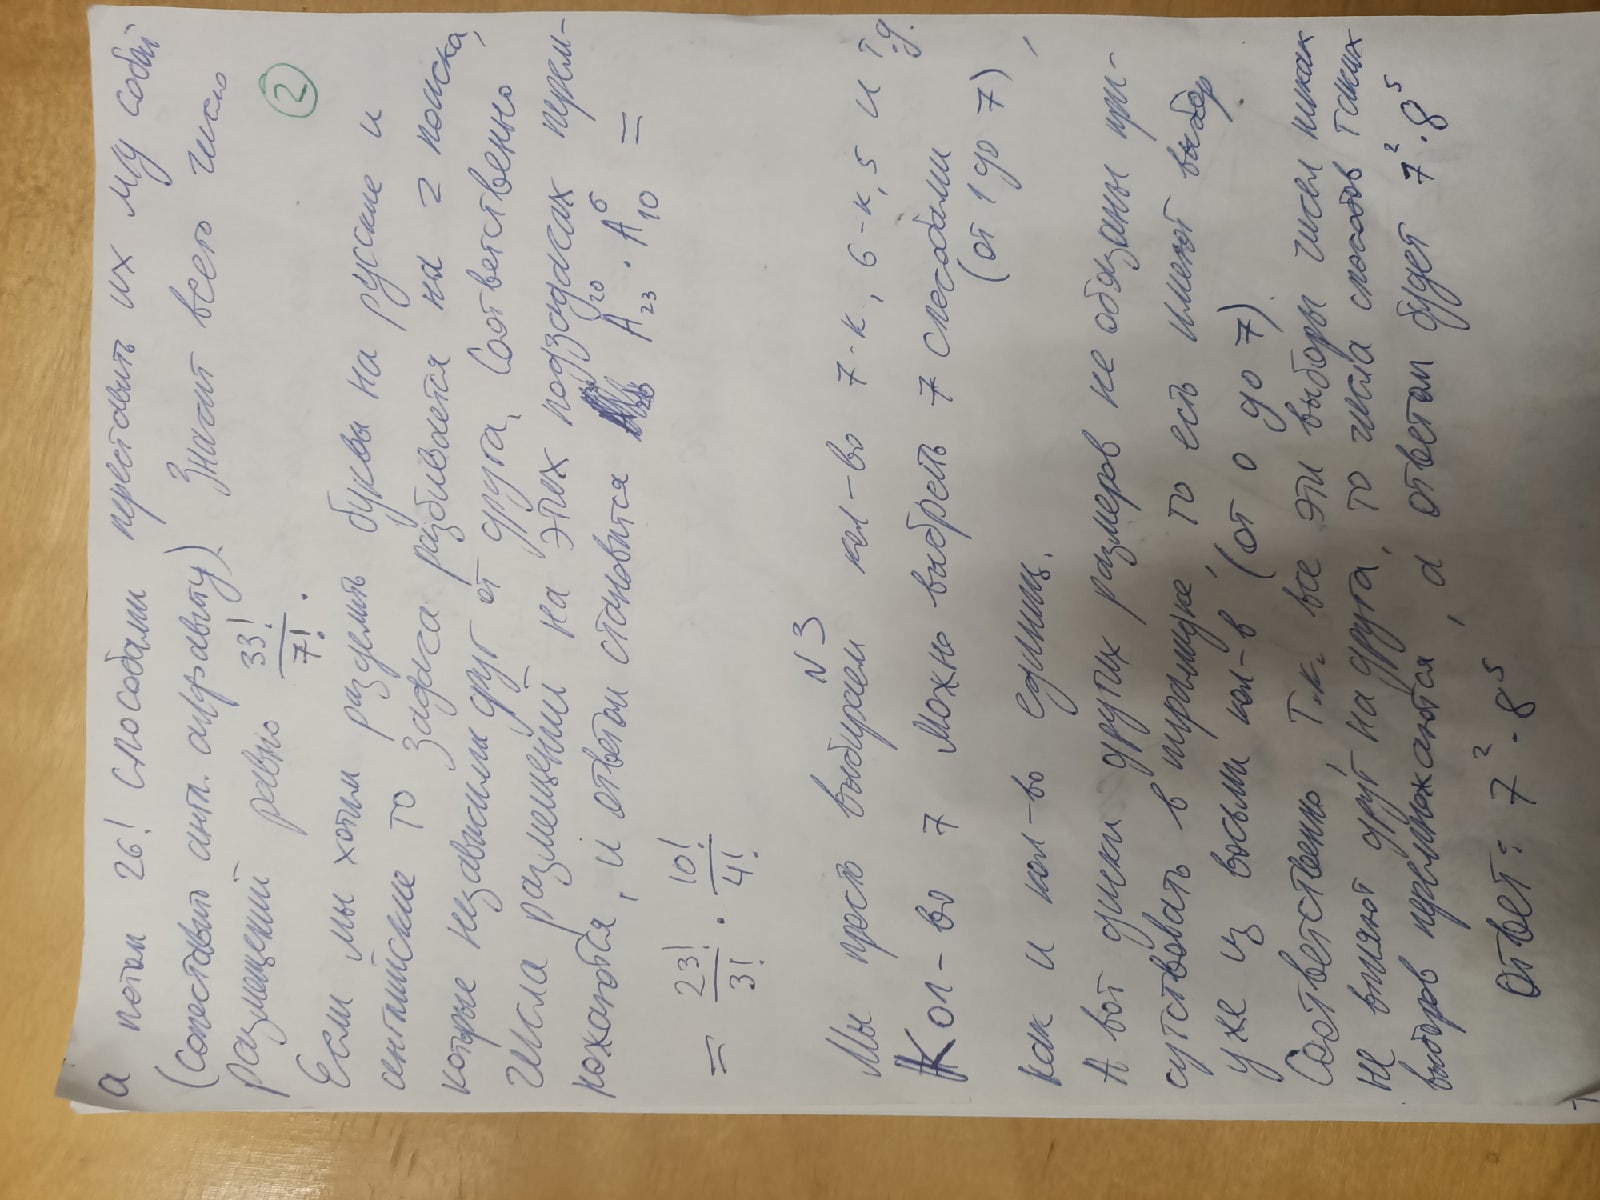 а потом 26! способами переставить их м/у собой
(сопоставить англ. алфавиту). Значит всего число
размещений равно 33!/7!.
②
Если мы хотим разделить буквы на русские и
английские то задача разбивается на 2 поиска,
которые независимы друг от друга. Соответственно
числа размещений на этих подзадачах перем-
ножаются, и ответом становится A₂₃²⁰ · A₁₀⁶ =
= 23!/3! · 10!/4!
N3
Мы просто выбираем кол-во 7-к, 6-к, 5 и т.д.
Кол-во 7 можно выбрать 7 способами
(от 1 до 7),
как и кол-во единиц.
А вот диски других размеров не обязаны при-
сутствовать в пирамидке, то есть имеют выбор
уже из восьми кол-в (от 0 до 7).
Соответственно, т.к. все эти выборы чисел никак
не влияют друг на друга, то числа способов таких
выборов перемножаются, а ответом будет 7²·8⁵
Ответ: 7²·8⁵